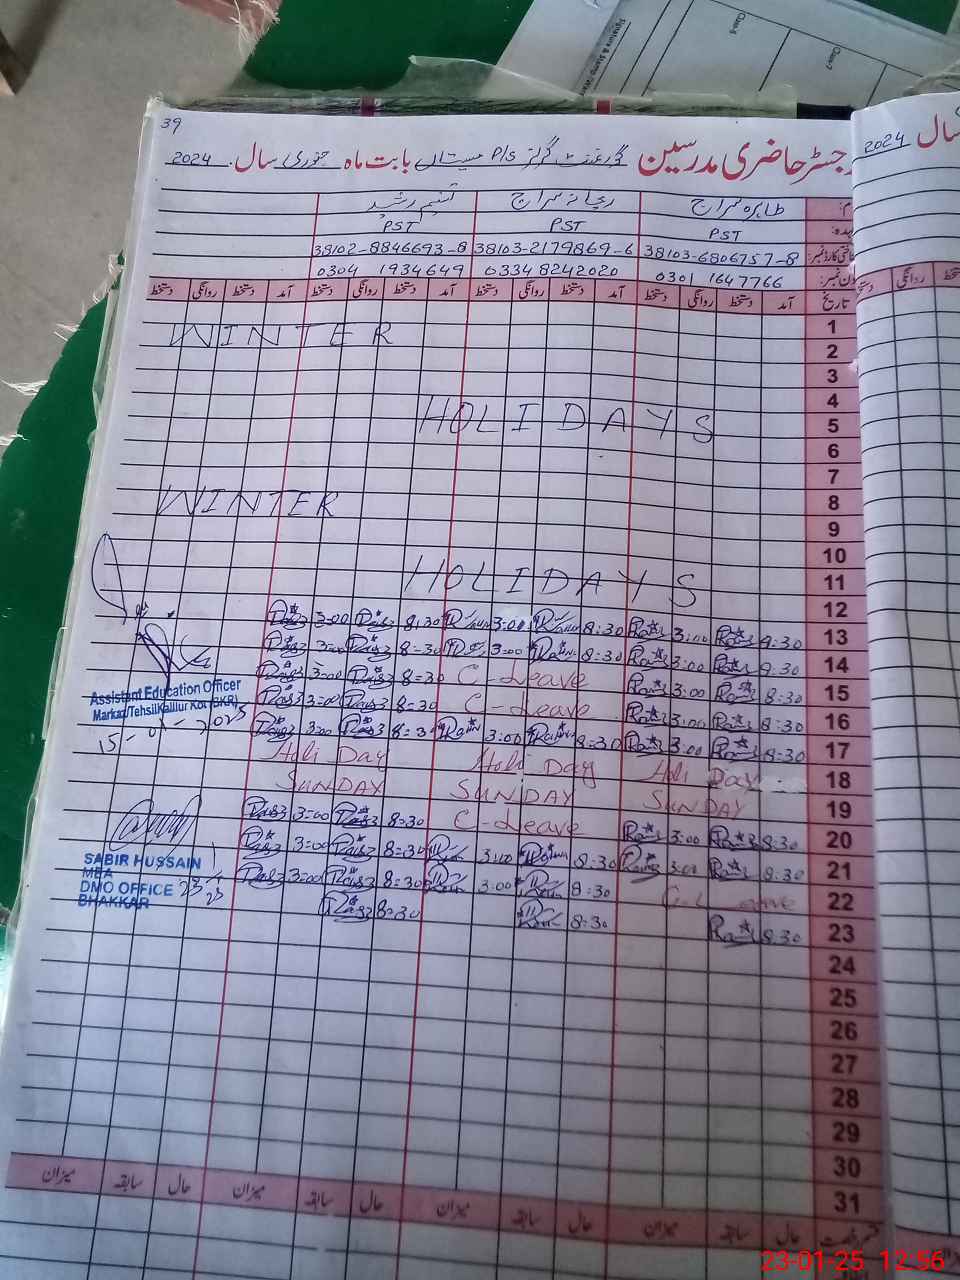 39
رجسٹر حاضری مدرسین گورنمنٹ گرلز P/S بابت ماہ جنوری سال 2024
طاہرہ سراج ریحانہ سراج تسنیم رشید
PST PST PST
38103-6806757-8 38103-2179869-6 38102-8846693-8
0301 1647766 0334 8242020 0304 1934649
تاریخ آمد دستخط روانگی دستخط آمد دستخط روانگی دستخط آمد دستخط روانگی دستخط آمد دستخط روانگی دستخط
1
WINTER
2
3
4
HOLIDAYS
5
6
7
WINTER
8
9
10
HOLIDAYS
11
12
3:00 8:30 3:00 8:30 3:00 8:30 13
3:00 8:30 3:00 8:30 3:00 8:30 14
3:00 8:30 C-Leave 3:00 8:30 15
3:00 8:30 C-Leave 3:00 8:30 16
3:00 8:30 3:00 8:30 3:00 8:30 17
Holi Day Holi Day Holi Day 18
SUNDAY SUNDAY SUNDAY 19
3:00 8:30 C-Leave 3:00 8:30 20
3:00 8:30 3:00 8:30 3:00 8:30 21
3:00 8:30 3:00 8:30 22
8:30 8:30 8:30 23
24
25
26
27
28
29
30
31
Assistant Education Officer
Markaz/Tehsil Kallur Kot (BKR)
SABIR HUSSAIN
MEA
DMO OFFICE
BHAKKAR
حال سابقہ میزان حال سابقہ میزان حال سابقہ میزان حال سابقہ میزان
سال 2024
روانگی
Signature & Stamp
Class-5
Class-7
23-01-25 12:56